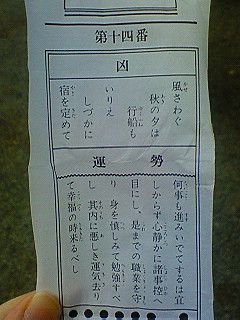 第十四番
凶
風さわぐ
秋の夕は
行船も
いりえ
しづかに
宿を定めて
運勢
何事も進みいでてするは宜
しからず心静かに諸事控へ
目にし、是までの職業を守
り 身を慎しみて勉強すべ
し 其内に悪しき運気去り
て幸福の時来るべし